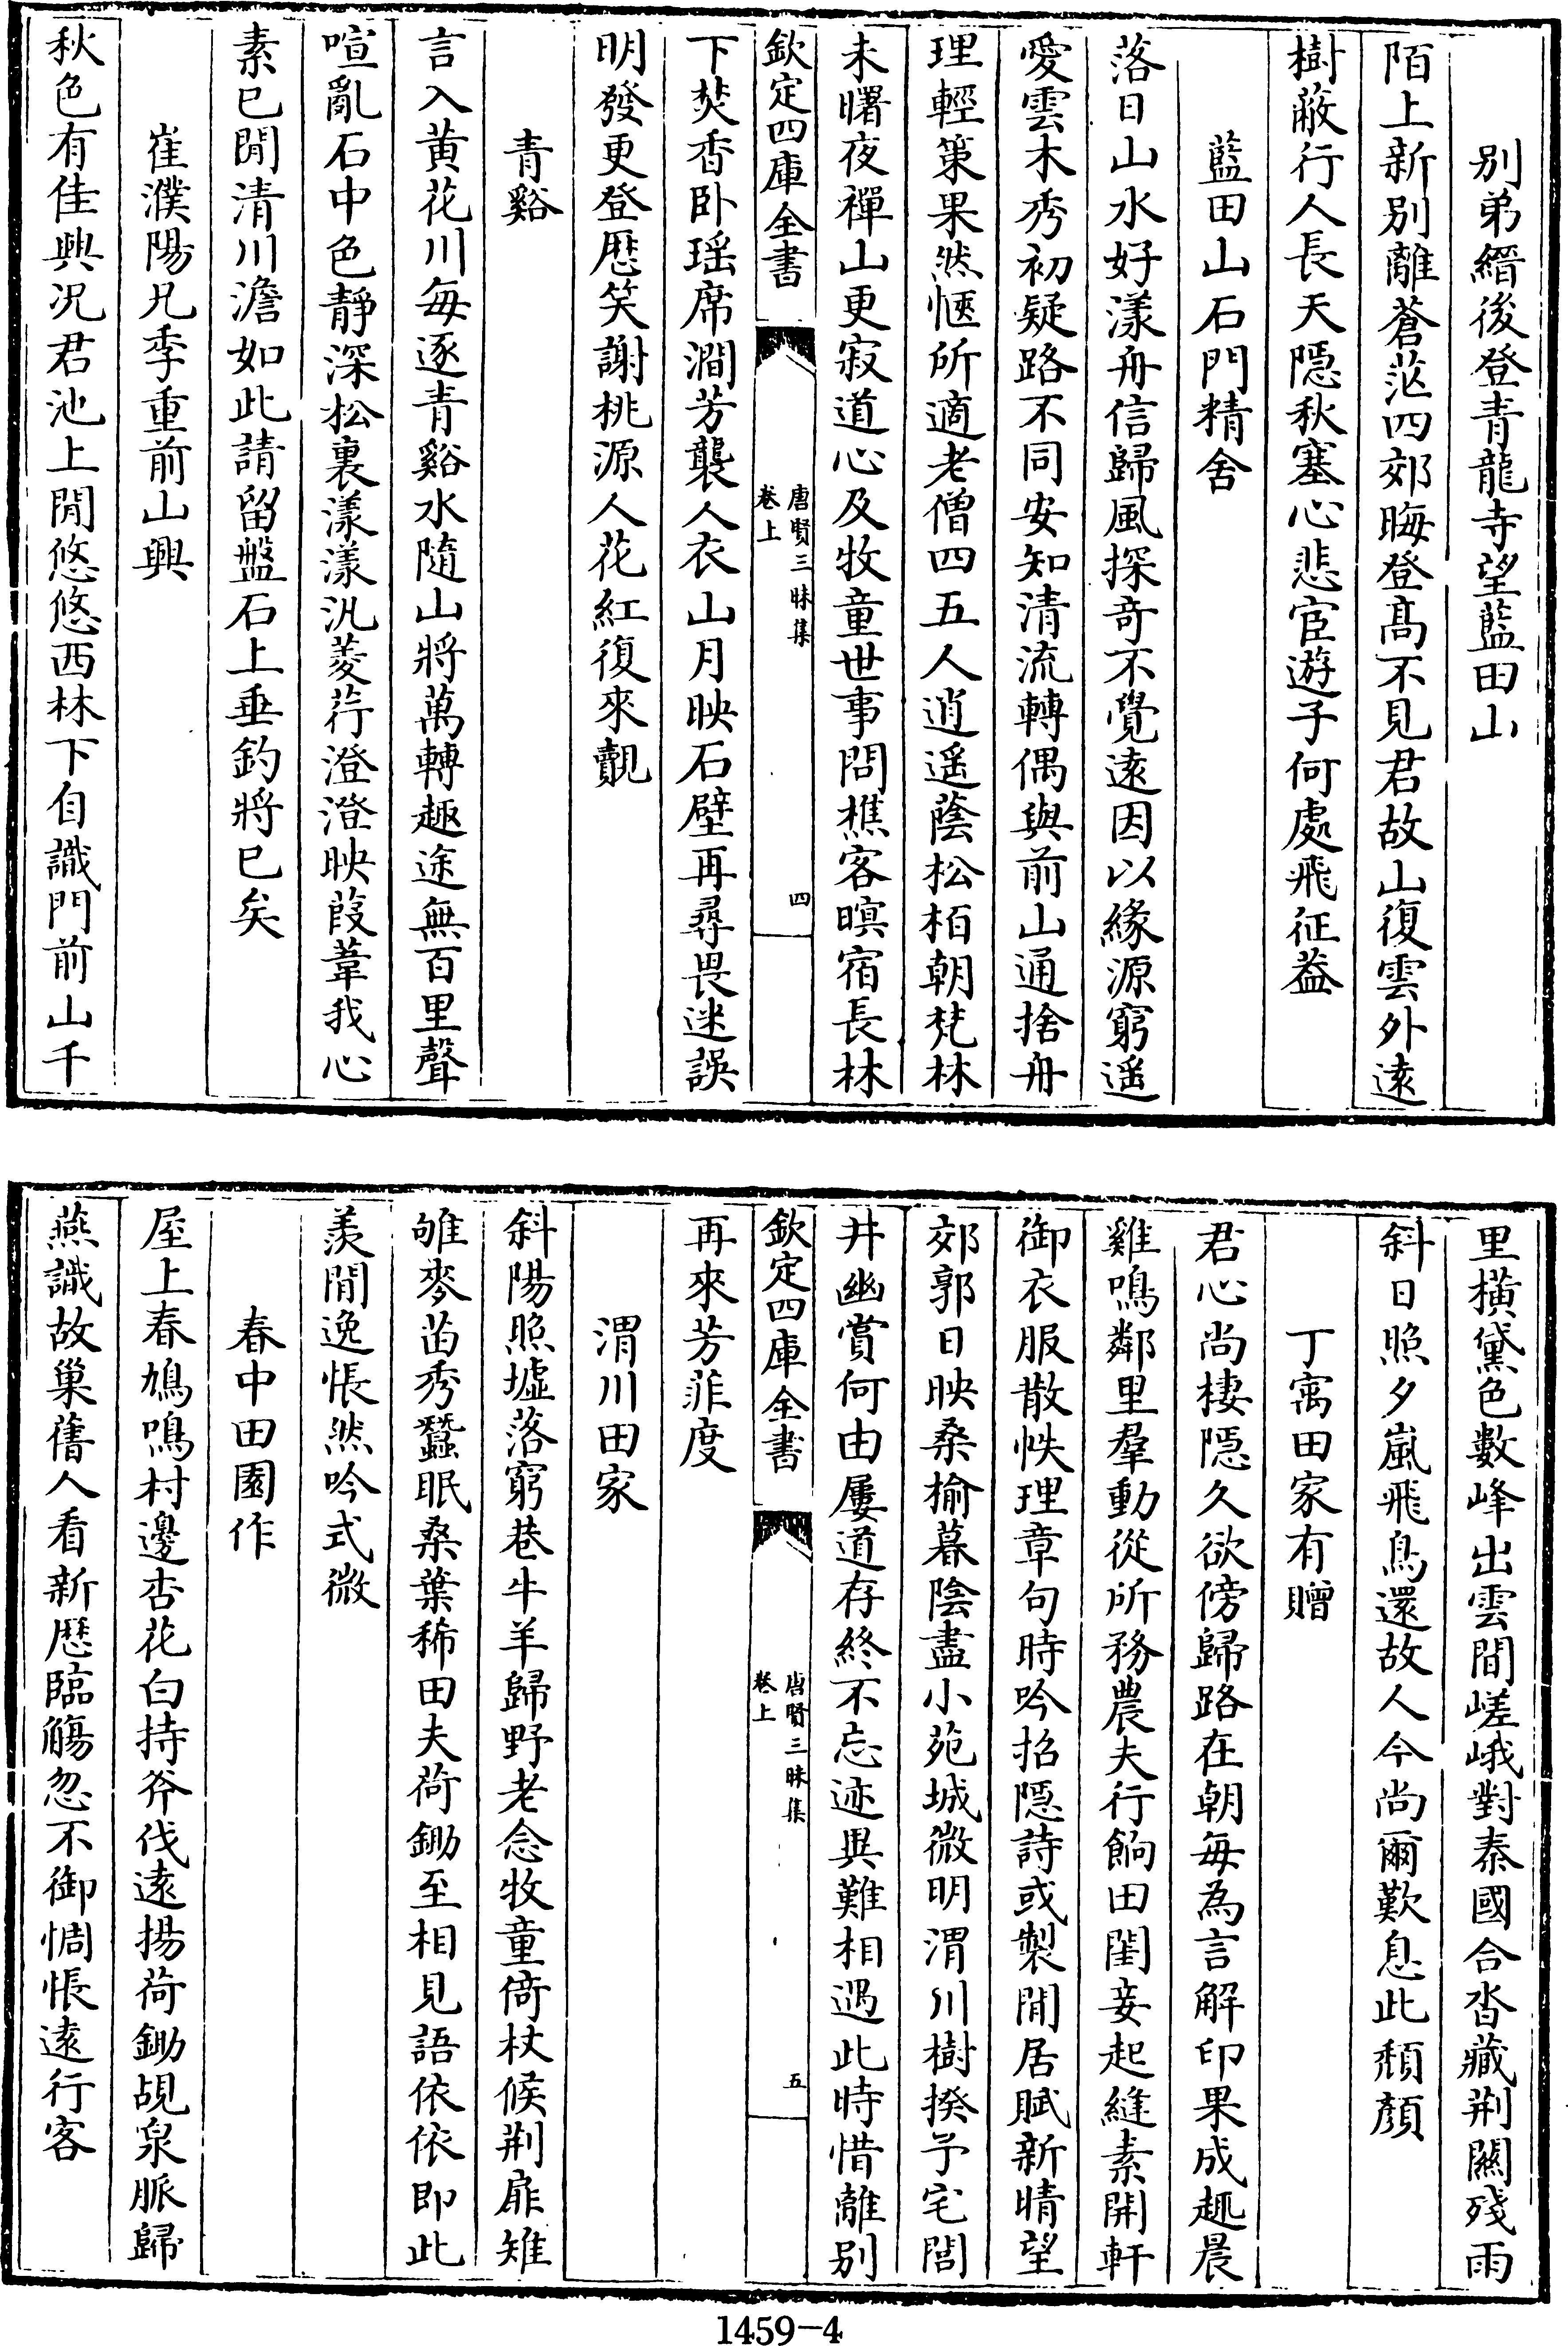 别弟縉後登青龍寺望藍田山
陌上新别離蒼茫四郊晦登髙不見君故山復雲外逺
樹蔽行人長天隱秋塞心悲宦遊子何處飛征葢
藍田山石門精舍
落日山水好漾舟信歸風探奇不覺逺因以緣源窮遥
愛雲木秀初疑路不同安知清流轉偶與前山通捨舟
理輕策果然愜所適老僧四五人逍遥蔭松栢朝梵林
未曙夜禪山更寂道心及牧童世事問樵客暝宿長林
欽定四庫全書
唐賢三昧集
卷上
四
下焚香卧瑶席澗芳襲人衣山月映石壁再尋畏迷誤
明發更登歴笑謝桃源人花紅復來覿
青谿
言入黄花川每逐青谿水隨山將萬轉趣途無百里聲
喧亂石中色靜深松裏漾漾汎菱荇澄澄映葭葦我心
素已閒清川澹如此請留盤石上垂釣將已矣
崔濮陽兄季重前山興
秋色有佳興况君池上閒悠悠西林下自識門前山千
里横黛色數峰出雲間嵯峨對秦國合沓藏荆關殘雨
斜日照夕嵐飛鳥還故人今尚爾歎息此頽顔
丁寓田家有贈
君心尚棲隱久欲傍歸路在朝每為言解印果成趣晨
雞鳴鄰里羣動從所務農夫行餉田閨妾起縫素開軒
御衣服散帙理章句時吟招隱詩或製閒居賦新晴望
郊郭日映桑榆暮陰盡小苑城微明渭川樹揆予宅閭
井幽賞何由屢道存終不忘迹異難相遇此時惜離别
欽定四庫全書
唐賢三昧集
卷上
五
再來芳菲度
渭川田家
斜陽照墟落窮巷牛羊歸野老念牧童倚杖候荆扉雉
雊麥苗秀蠶眠桑葉稀田夫荷鋤至相見語依依即此
羨閒逸悵然吟式微
春中田園作
屋上春鳩鳴村邊杏花白持斧伐逺揚荷鋤覘泉脈歸
燕識故巢舊人看新歴臨觴忽不御惆悵逺行客
1459-4